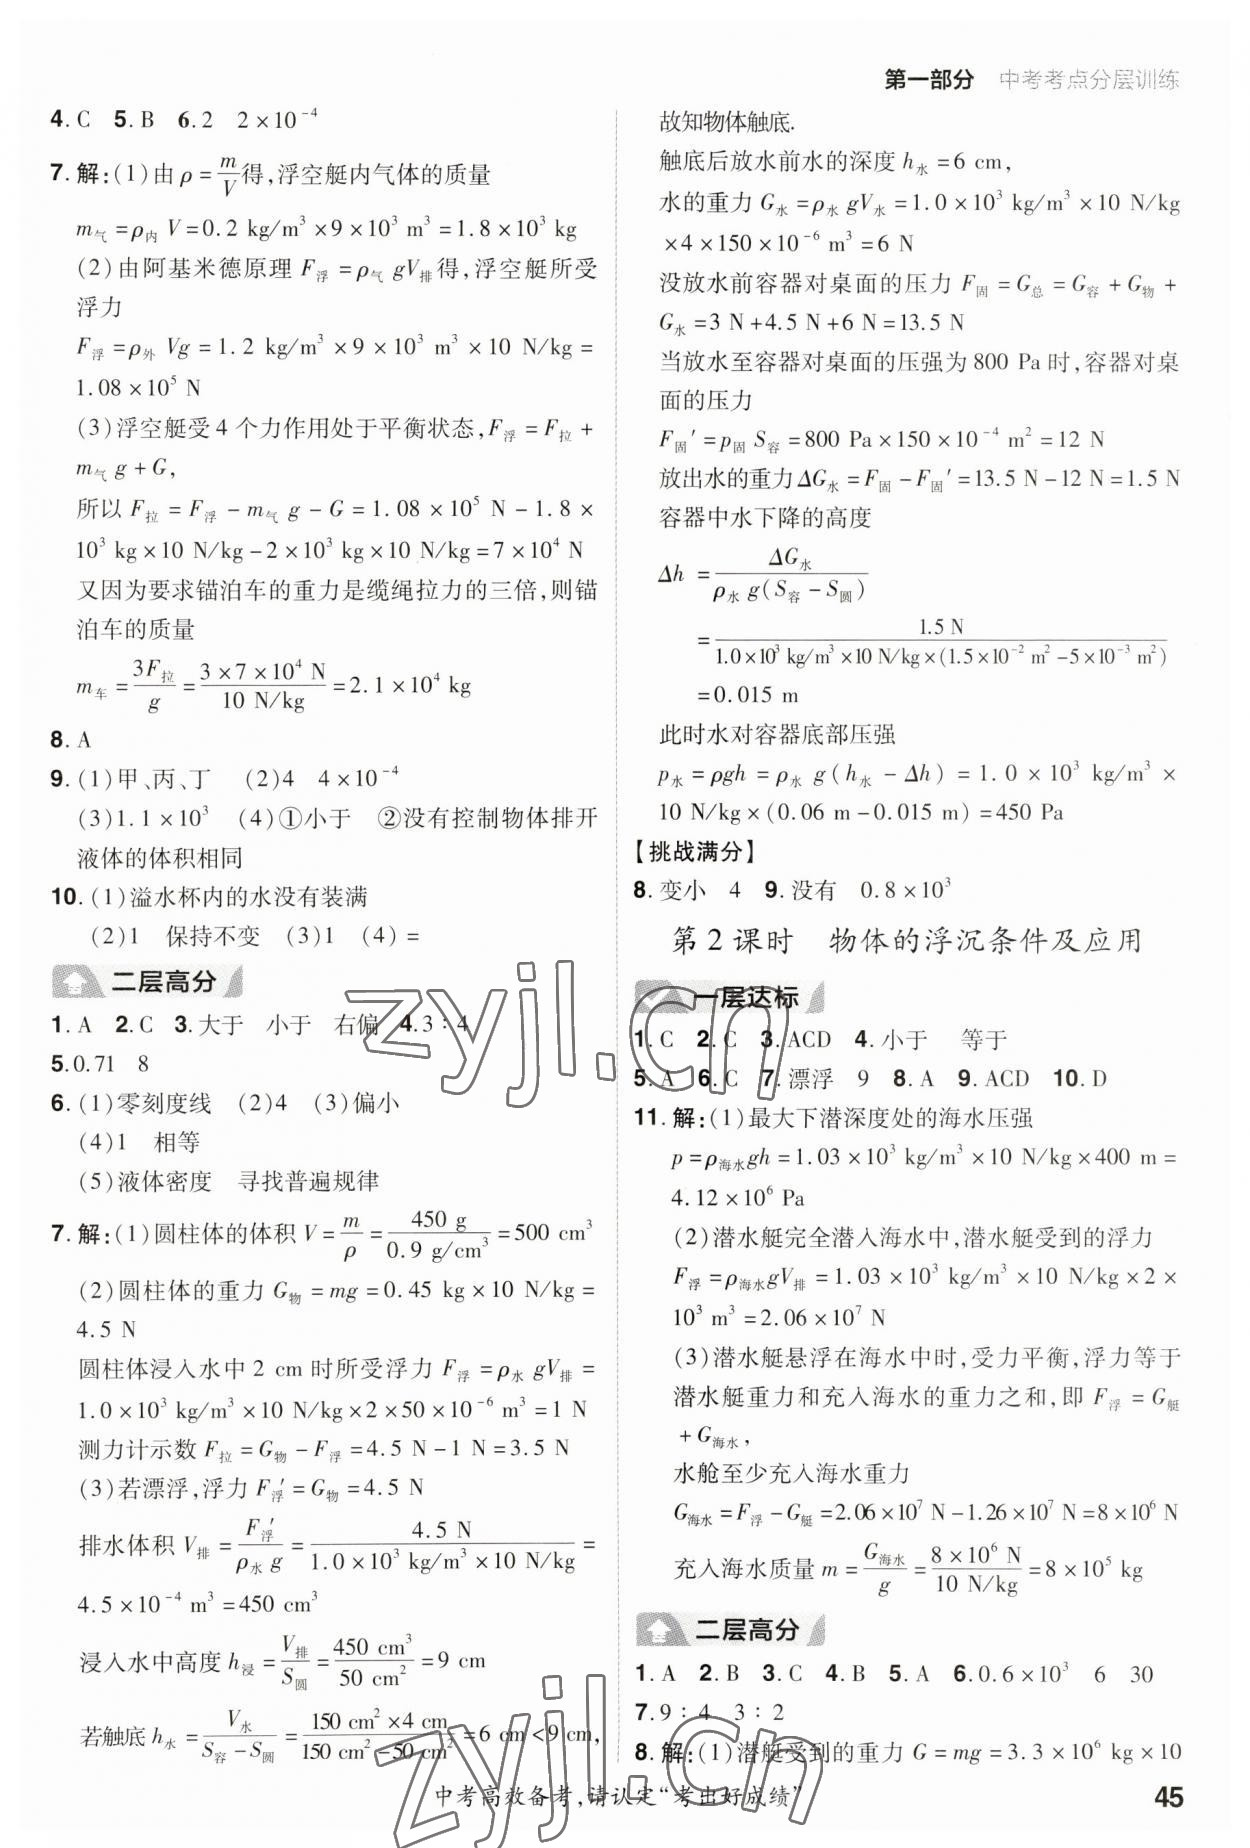 第一部分 中考考点分层训练
4. C 5. B 6. 2 2×10⁻⁴
7. 解:(1)由 ρ = m/V 得,浮空艇内气体的质量
m气 = ρ内 V = 0.2 kg/m³ × 9×10³ m³ = 1.8×10³ kg
(2)由阿基米德原理 F浮 = ρ气 gV排得,浮空艇所受
浮力
F浮 = ρ外 Vg = 1.2 kg/m³ × 9×10³ m³ × 10 N/kg =
1.08×10⁵ N
(3)浮空艇受 4 个力作用处于平衡状态,F浮 = F拉 +
m气 g + G,
所以 F拉 = F浮 − m气 g − G = 1.08×10⁵ N − 1.8×
10³ kg×10 N/kg − 2×10³ kg×10 N/kg = 7×10⁴ N
又因为要求锚泊车的重力是缆绳拉力的三倍,则锚
泊车的质量
m车 = 3F拉/g = 3×7×10⁴ N/10 N/kg = 2.1×10⁴ kg
8. A
9. (1)甲、丙、丁 (2)4 4×10⁻⁴
(3)1.1×10³ (4)①小于 ②没有控制物体排开
液体的体积相同
10. (1)溢水杯内的水没有装满
(2)1 保持不变 (3)1 (4) =
二层高分
1. A 2. C 3. 大于 小于 右偏 4. 3∶4
5. 0.71 8
6. (1)零刻度线 (2)4 (3)偏小
(4)1 相等
(5)液体密度 寻找普遍规律
7. 解:(1)圆柱体的体积 V = m/ρ = 450 g/0.9 g/cm³ = 500 cm³
(2)圆柱体的重力 G物 = mg = 0.45 kg×10 N/kg =
4.5 N
圆柱体浸入水中 2 cm 时所受浮力 F浮 = ρ水 gV排 =
1.0×10³ kg/m³×10 N/kg×2×50×10⁻⁶ m³ = 1 N
测力计示数 F拉 = G物 − F浮 = 4.5 N − 1 N = 3.5 N
(3)若漂浮,浮力 F浮′ = G物 = 4.5 N
排水体积 V排 = F浮′/ρ水 g = 4.5 N/1.0×10³ kg/m³×10 N/kg =
4.5×10⁻⁴ m³ = 450 cm³
浸入水中高度 h浸 = V排/S圆 = 450 cm³/50 cm² = 9 cm
若触底 h水 = V水/S容 − S圆 = 150 cm²×4 cm/150 cm² − 50 cm² = 6 cm < 9 cm,
故知物体触底.
触底后放水前水的深度 h水 = 6 cm,
水的重力 G水 = ρ水 gV水 = 1.0×10³ kg/m³×10 N/kg
×4×150×10⁻⁶ m³ = 6 N
没放水前容器对桌面的压力 F固 = G总 = G容 + G物 +
G水 = 3 N + 4.5 N + 6 N = 13.5 N
当放水至容器对桌面的压强为 800 Pa 时,容器对桌
面的压力
F固′ = p固 S容 = 800 Pa×150×10⁻⁴ m² = 12 N
放出水的重力 ΔG水 = F固 − F固′ = 13.5 N − 12 N = 1.5 N
容器中水下降的高度
Δh = ΔG水/ρ水 g(S容 − S圆)
= 1.5 N/1.0×10³ kg/m³×10 N/kg×(1.5×10⁻² m² − 5×10⁻³ m²)
= 0.015 m
此时水对容器底部压强
p水 = ρgh = ρ水 g(h水 − Δh) = 1.0×10³ kg/m³×
10 N/kg×(0.06 m − 0.015 m) = 450 Pa
【挑战满分】
8. 变小 4 9. 没有 0.8×10³
第 2 课时 物体的浮沉条件及应用
一层达标
1. C 2. C 3. ACD 4. 小于 等于
5. A 6. C 7. 漂浮 9 8. A 9. ACD 10. D
11. 解:(1)最大下潜深度处的海水压强
p = ρ海水gh = 1.03×10³ kg/m³×10 N/kg×400 m =
4.12×10⁶ Pa
(2)潜水艇完全潜入海水中,潜水艇受到的浮力
F浮 = ρ海水gV排 = 1.03×10³ kg/m³×10 N/kg×2×
10³ m³ = 2.06×10⁷ N
(3)潜水艇悬浮在海水中时,受力平衡,浮力等于
潜水艇重力和充入海水的重力之和,即 F浮 = G艇
+ G海水,
水舱至少充入海水重力
G海水 = F浮 − G艇 = 2.06×10⁷ N − 1.26×10⁷ N = 8×10⁶ N
充入海水质量 m = G海水/g = 8×10⁶ N/10 N/kg = 8×10⁵ kg
二层高分
1. A 2. B 3. C 4. B 5. A 6. 0.6×10³ 6 30
7. 9∶4 3∶2
8. 解:(1)潜艇受到的重力 G = mg = 3.3×10⁶ kg×10
中考高效备考,请认定“考出好成绩”
45
zyjl.cn
zyjl.cn